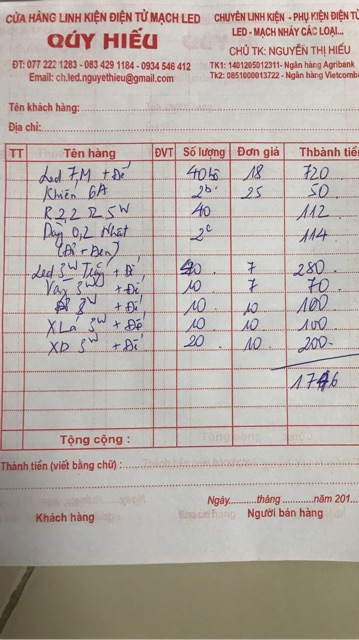 CỬA HÀNG LINH KIỆN ĐIỆN TỬ MẠCH LED
QÚY HIẾU
ĐT: 077 222 1283 - 083 429 1184 - 0934 546 412
Email: ch.led.nguyethieu@gmail.com
CHUYÊN LINH KIỆN - PHỤ KIỆN ĐIỆN TỬ
LED - MẠCH NHÁY CÁC LOẠI...
CHỦ TK: NGUYỄN THỊ HIẾU
TK1: 1401205012311- Ngân hàng Agribank
Tk2: 0851000013722 - Ngân hàng Vietcomba
Tên khách hàng:
Địa chỉ:
TT Tên hàng ĐVT Số lượng Đơn giá Thbành tiền
Led 7,M + Đế 40 18 720
Khiển 6A 2b 25 50
R22Ω 5W 40 112
Dây 0,2 Nhật 2c 114
(Đỏ + Đen)
Led 3W Trắng + Đ 40 7 280
Vàng 3W + Đế 10 7 70
Đỏ 3W 10 10 100
X Lá 3W + Đế 10 10 100
XD 3W + Đế 20 10 200
1746
Tổng cộng :
Thành tiền (viết bằng chữ) :
Ngày..........tháng ...........năm 201...
Khách hàng Người bán hàng